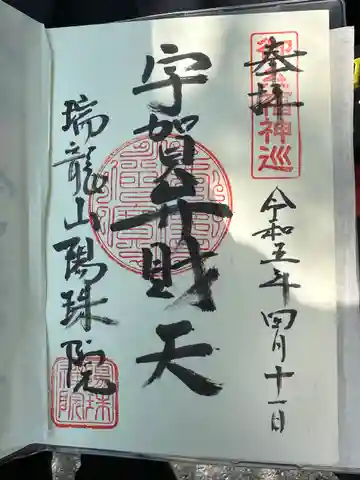 奉拝
令和五年四月十一日
宇賀弁財天
瑞龍山陽珠院